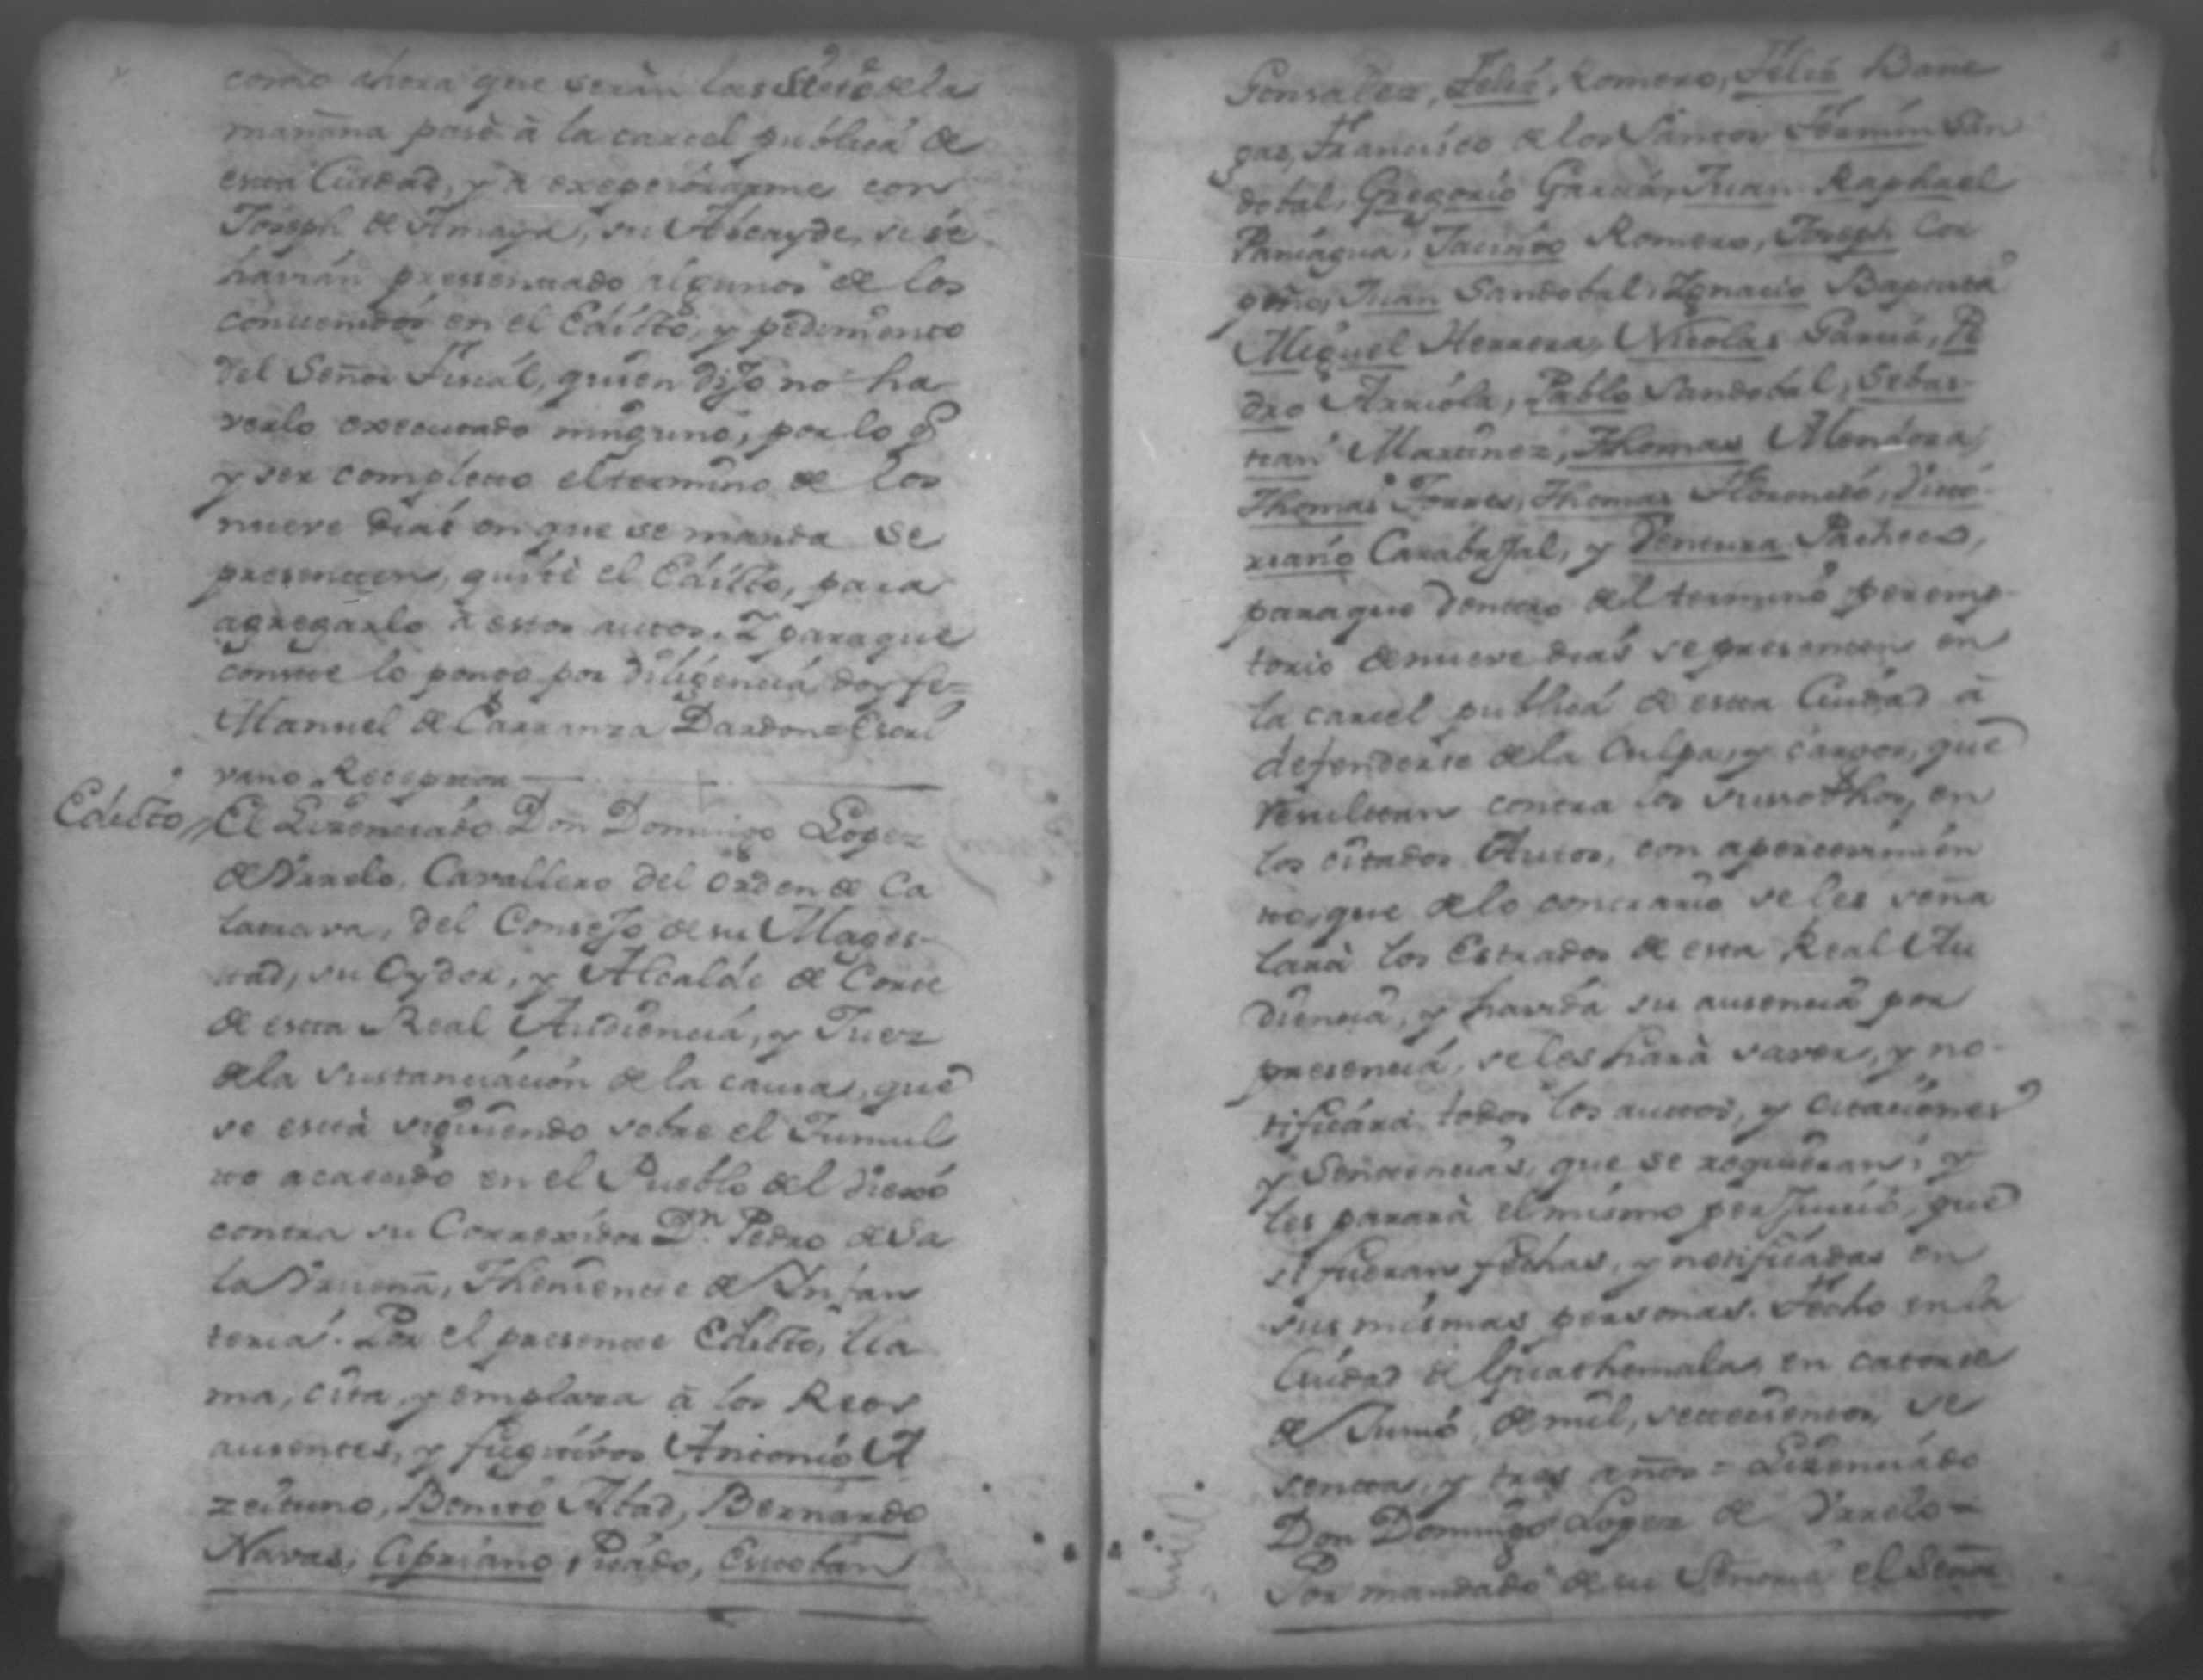 como ahora que serán las siete de la
mañana pasè à la carcel publica de
esta Ciudad, y à exepcionarme con
Joseph de Amaya, su Alcayde, si se
havian pressentado algunos de los
contenidos en el Edicto, y pedimento
del Señor Fiscál, quien dijo no ha
verlo executado ninguno, por lo q̃
y ser completo el termino de los
nueve dias en que se manda se
presenten, quitè el Edicto, para
agregarlo à estos autos. Y para que
conste lo pongo por diligencia, doy fe=
Manuel de Carranza Dardon=Escri
vano Receptor
Edicto
El Lizenciado Don Domingo Lopez
de Urrelo, Cavallero del orden de Ca
latrava, del Consejo de su Mages-
tad, su Oydor, y Alcalde de Corte
de esta Real Audiencia, y Juez
de la sustanciacion de la causa, que
se està siguiendo sobre el Tumul
to acaecido en el Pueblo del Viexo
contra su Correxidor Dn. Pedro de Sa
la Urueña, Theniente de Infan
teria. Por el presente Edicto, lla
ma, cita, y emplaza à los Reos
ausentes, y fugitivos Antonio A
zeituno, Benito Abad, Bernardo
Navas, Cipriano Picado, Estevan
Gonsalez, Feliz Romero, Feliz Bane
gas, Francisco de los Santos, Fermin San
dobal, Gregorio Garcia, Juan Raphael
Paniagua, Jacinto Romero, Joseph Cor
peño, Juan Sandobal, Ygnacio Bapuista
Miguel Herrera, Nicolas Garcia, Pe
dro Arriola, Pablo Sandobal, Sebas-
tian Martinez, Thomas Mendoza,
Thomas Torres, Thomas Florencio, Victo
riano Carabajal, y Ventura Pacheco,
para que dentro del termino peremp-
torio de nueve dias se presenten en
la carcel publica de esta Ciudad à
defenderse de la Culpa, y cargos, que
resultan contra los susodhos, en
los citados Autos, con apercevimien
to, que de lo contrario se les seña
larà los Estrados de esta Real Au
diencia, y havida su ausencia por
presencia, se les harà saver, y no-
tificára todos los auttos, y citaciones
y Sentencias, que se requieran, y
les pararà el mismo perjuicio, que
si fueran fechas, y notificadas en
sus mismas personas. Fecho en la
Ciudad de Guathemala, en catorce
de Junio, de mil, setecientos, se
senta, y tres años = Lizenciado
Don Domingo Lopez de Urrelo =
Por mandado de su Señoria el Señor